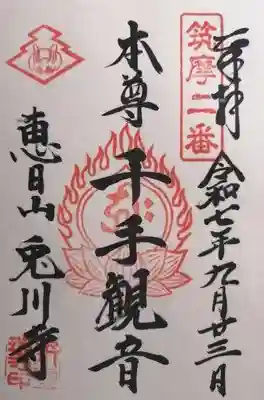 奉拝
令和七年九月廿三日
筑摩二番
本尊 千手観音
恵日山 兎川寺